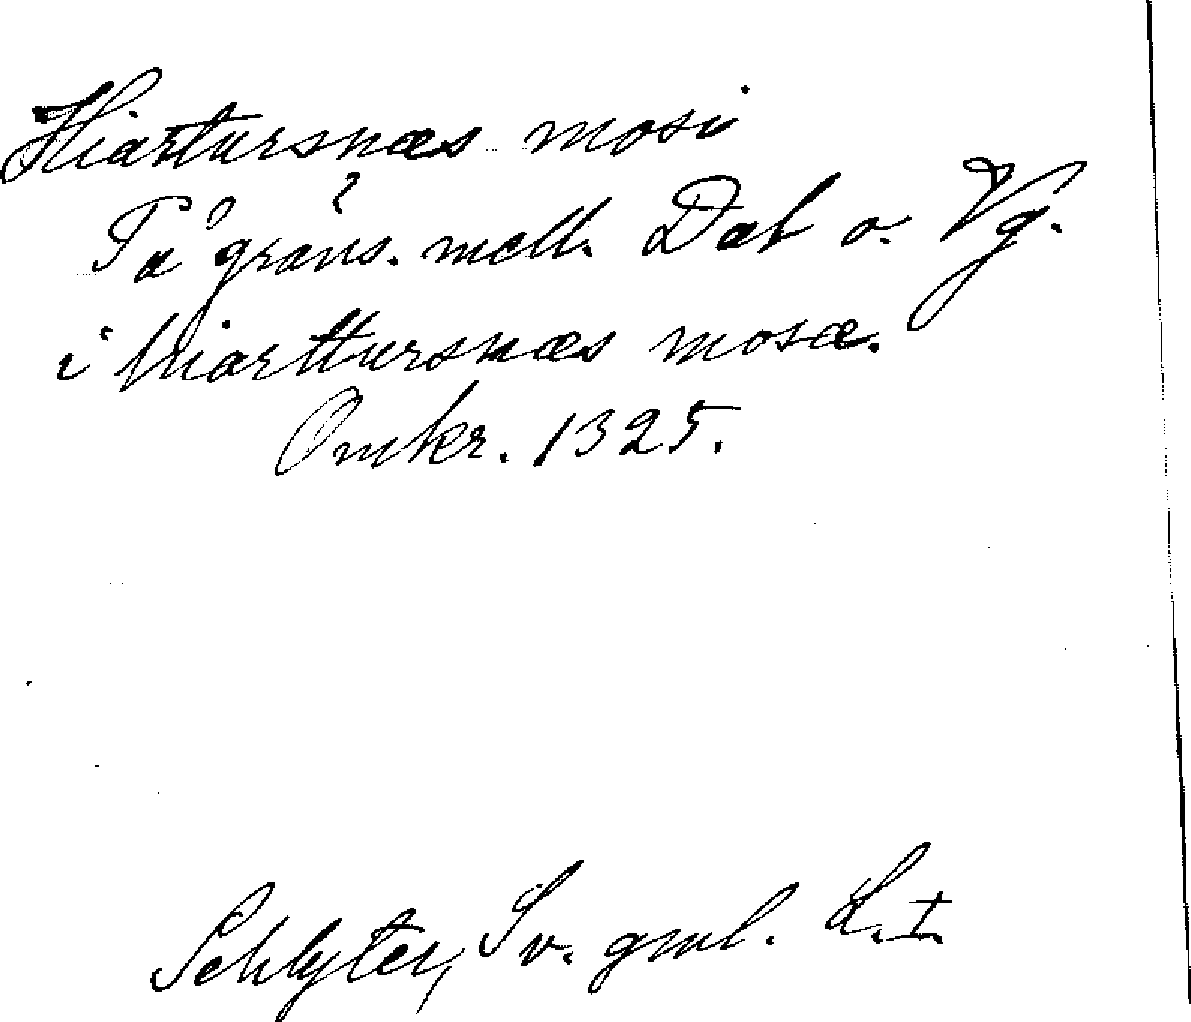 Hiartursnæs mosi
På gräns. mell. Dal o. Vg.
i hiarttursnæs mosæ.
Omkr. 1325.
Schlyter, Sv. gml. L. I.